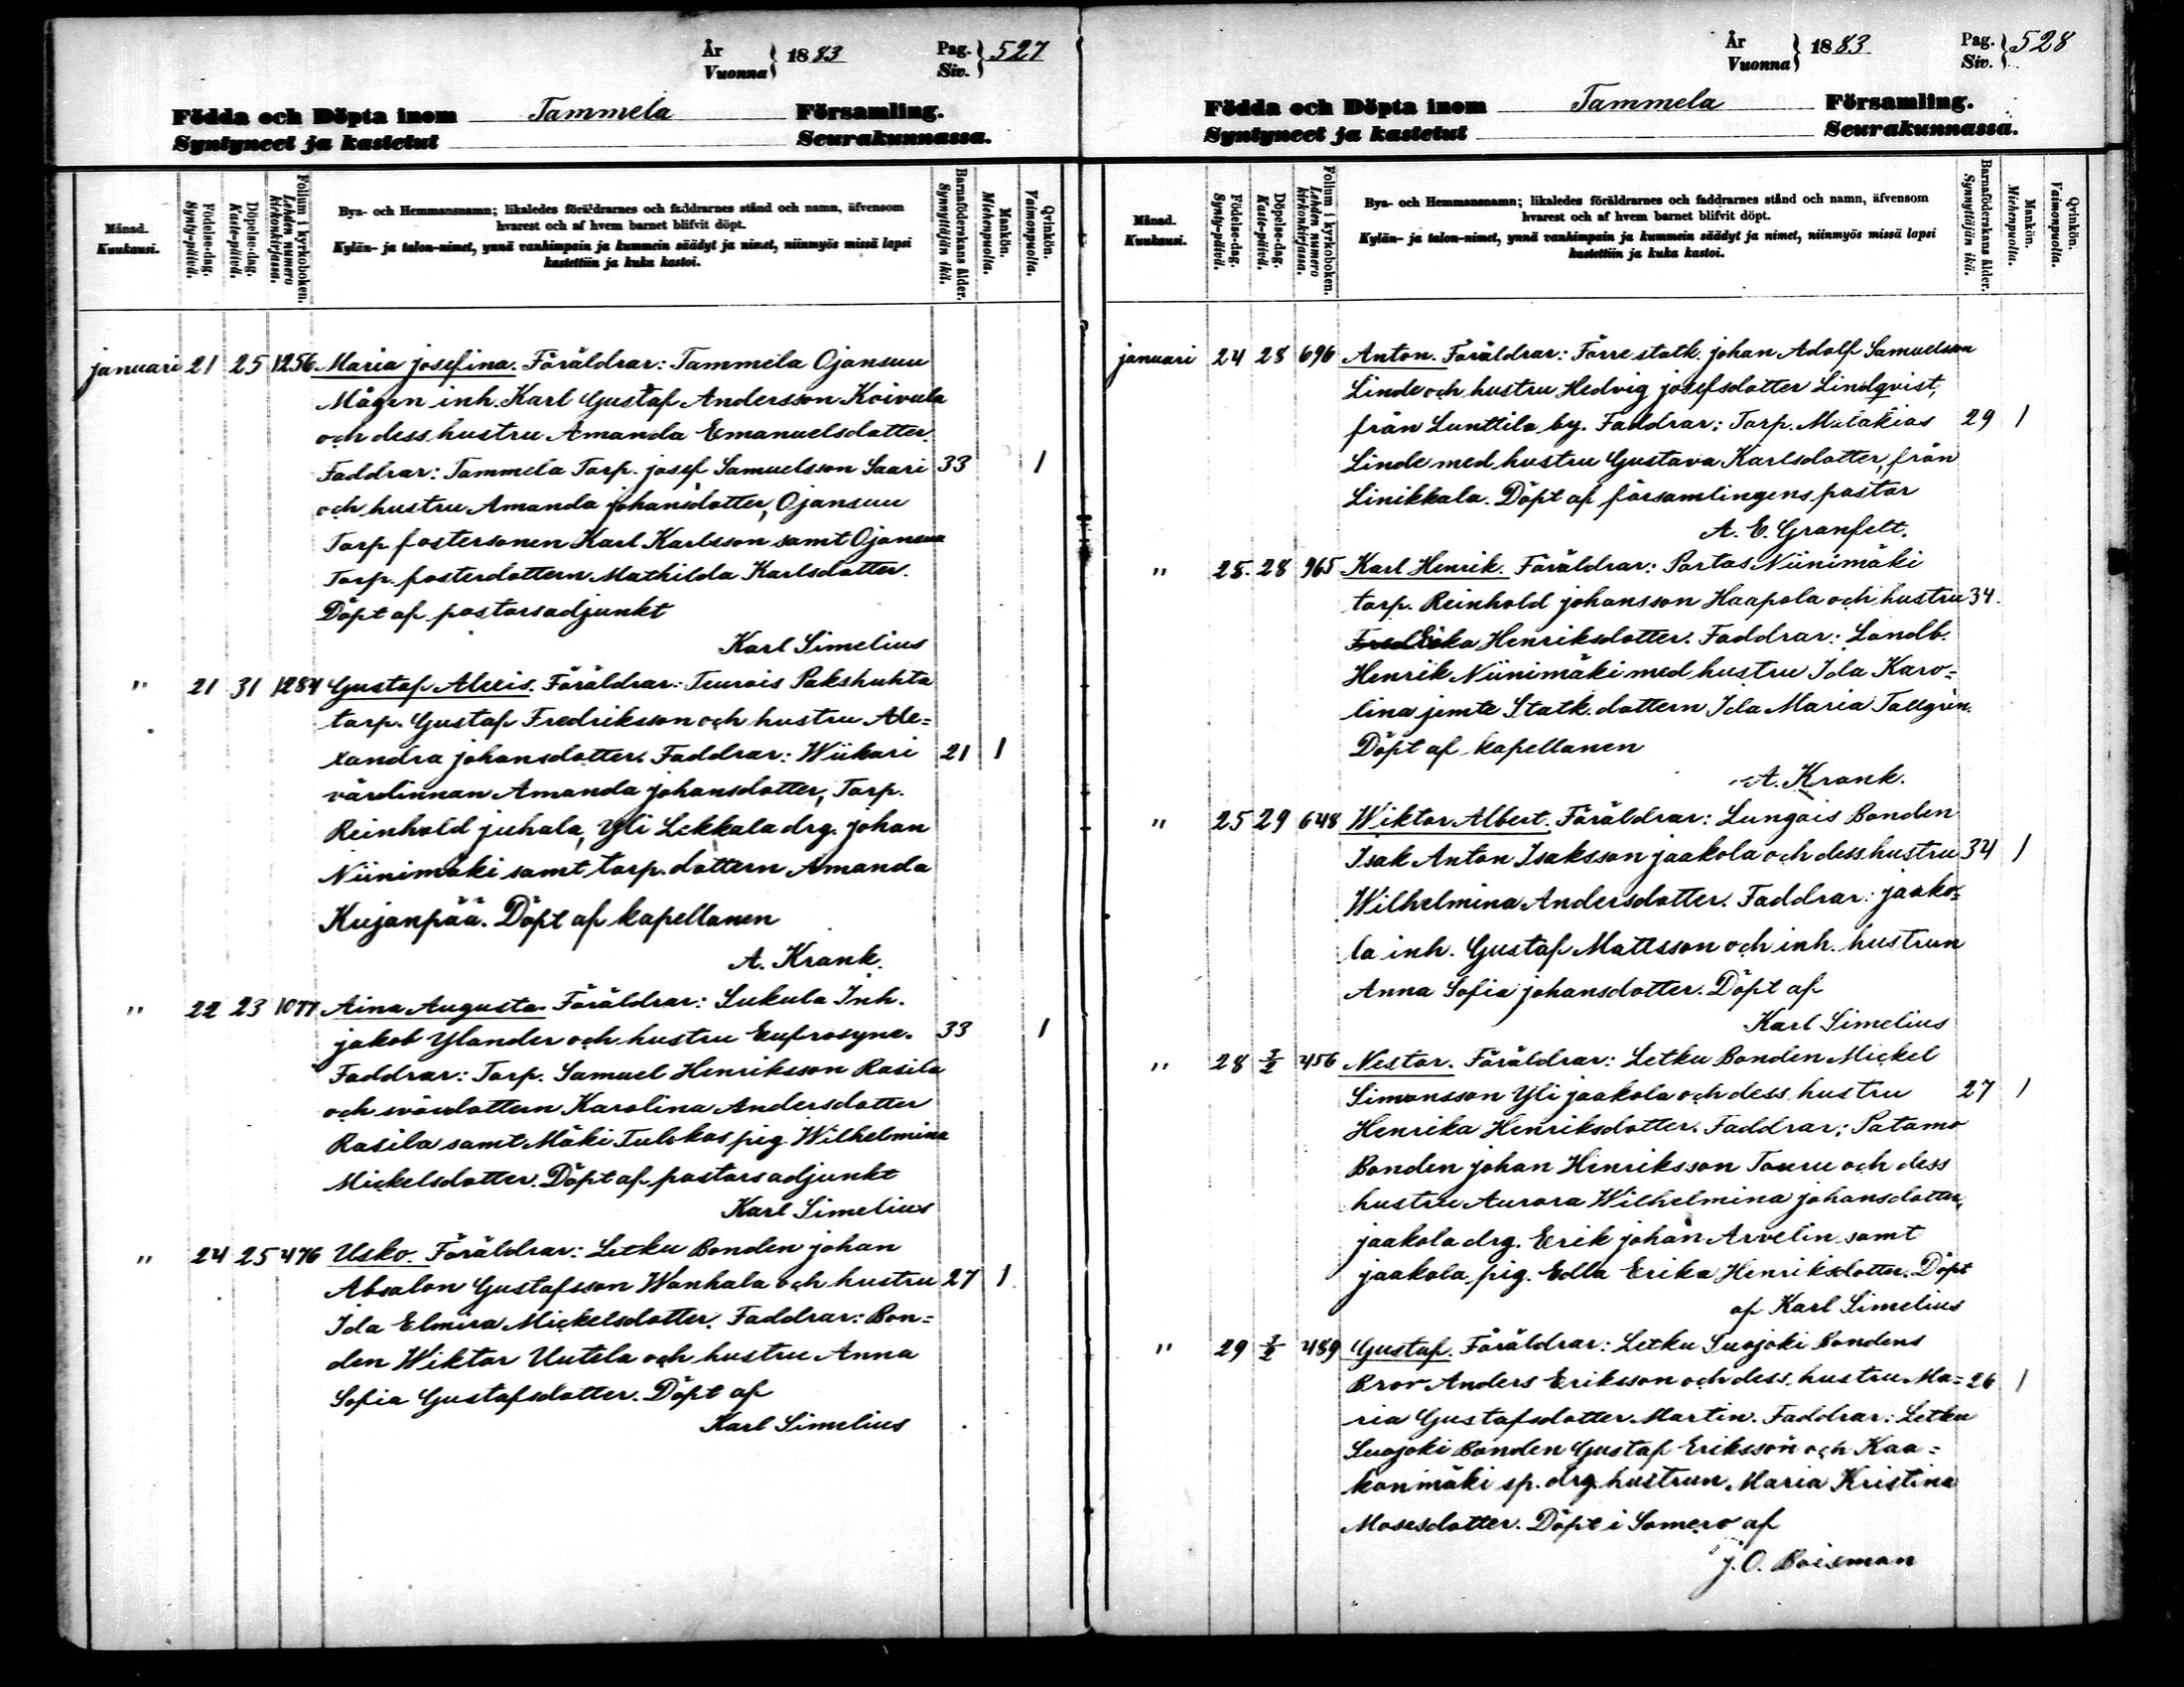 År
Vuonna } 1883 Pag.
Siv. } 527
Födda och Döpta inom Tammela Församling.
Syntyneet ja kastetut Seurakunnassa.
Månad.
Kuukausi.
Födelse-dag.
Synty-päivä.
Döpelse-dag.
Kaste-päivä.
Folium i kyrkoboken.
Lehden numero
kirkonkirjassa.
Bya- och Hemmansnamn; likaledes föräldrarnes och faddrarnes stånd och namn, äfvensom
hvarest och af hvem barnet blifvit döpt.
Kylän- ja talon-nimet, ynnä vanhimpain ja kummein säädyt ja nimet, niinmyös missä lapsi
kastettiin ja kuka kastoi.
Barnaföderskans ålder.
Synnyttäjän ikä.
Mankön.
Miehenpuolia.
Qvinkön.
Vaimonpuolia.
januari 21 25 1256 Maria josefina. Föräldrar: Tammela Ojansuu
Mågen inh. Karl Gustaf Andersson Koivula
och dess hustru Amanda Emanuelsdotter.
Faddrar: Tammela Torp. josef Samuelsson Saari 33 1
och hustru Amanda johansdotter, Ojansuu
Torp. fostersonen Karl Karlsson samt Ojansuu
Torp. fosterdottern Mathilda Karlsdotter.
Döpt af pastorsadjunkt
Karl Simelius
" 21 31 1284 Gustaf Alexis. Föräldrar: Teurois Pakshuhta
torp. Gustaf Fredriksson och hustru Ale=
xandra johansdotter. Faddrar: Wiikari 21 1
värdinnan Amanda johansdotter, Torp.
Reinhold juhala, Yli Lekkala drg. johan
Niinimäki samt torp. dottern Amanda
Kujanpää. Döpt af kapellanen
A. Krank.
" 22 23 1077 Aina Augusta. Föräldrar: Sukula Inh.
jakob Ylander och hustru Eufrosyne. 33 1
Faddrar: Torp. Samuel Henriksson Rasila
och svärdottern Karolina Andersdotter
Rasila samt Mäki Tulokas pig. Wilhelmina
Mickelsdotter. Döpt af pastorsadjunkt
Karl Simelius
" 24 25 476 Usko. Föräldrar: Letku Bonden johan
Absalon Gustafsson Wanhala och hustru 27 1
Ida Elmira Mickelsdotter. Faddrar: Bon=
den Wiktor Uutela och hustru Anna
Sofia Gustafsdotter. Döpt af
Karl Simelius
År
Vuonna } 1883 Pag.
Siv. } 528
Födda och Döpta inom Tammela Församling.
Syntyneet ja kastetut Seurakunnassa.
Månad.
Kuukausi.
Födelse-dag.
Synty-päivä.
Döpelse-dag.
Kaste-päivä.
Folium i kyrkoboken.
Lehden numero
kirkonkirjassa.
Bya- och Hemmansnamn; likaledes föräldrarnes och faddrarnes stånd och namn, äfvensom
hvarest och af hvem barnet blifvit döpt.
Kylän- ja talon-nimet, ynnä vanhimpain ja kummein säädyt ja nimet, niinmyös missä lapsi
kastettiin ja kuka kastoi.
Barnaföderskans ålder.
Synnyttäjän ikä.
Mankön.
Miehenpuolia.
Qvinkön.
Vaimonpuolia.
januari 24 28 696 Anton. Föräldrar: Förre statk. johan Adolf Samuelsson
Linde och hustru Hedvig josefsdotter Lindqvist,
från Lunttila by. Faddrar: Torp. Malakias 29 1
Linde med hustru Gustava Karlsdotter, från
Linikkala. Döpt af församlingens pastor
A. E. Granfelt.
" 25. 28 965 Karl Henrik. Föräldrar: Portas Niinimäki
torp. Reinhold johansson Haapola och hustru 34.
Erika Henriksdotter. Faddrar: Landb.
Henrik Niinimäki med hustru Ida Karo=
lina jemte Statk. dottern Ida Maria Tallgrén.
Döpt af kapellanen
A. Krank.
" 25 29 648 Wiktor Albert. Föräldrar: Lungois Bonden
Isak Anton Isaksson jaakola och dess hustru 34 1
Wilhelmina Andersdotter. Faddrar: jaako=
la inh. Gustaf Mattsson och inh. hustrun
Anna Sofia johansdotter. Döpt af
Karl Simelius
" 28 3/2 456 Nestor. Föräldrar: Letku Bonden Mickel
Simonsson Yli jaakola och dess hustru 27 1
Henrika Henriksdotter. Faddrar: Patamo
Bonden johan Henriksson Touru och dess
hustru Aurora Wilhelmina johansdotter,
jaakola drg. Erik johan Arvelin samt
jaakola pig. Edla Erika Henriksdotter. Döpt
af Karl Simelius
" 29 3/2 489 Gustaf. Föräldrar: Letku Suojoki Bondens
Bror Anders Eriksson och dess hustru Ma= 26 1
ria Gustafsdotter Martin. Faddrar: Letku
Suojoki Bonden Gustaf Eriksson och Kaa=
konimäki sp. drg. hustrun Maria Kristina
Mosesdotter. Döpt i Somero af
J. O. Boisman